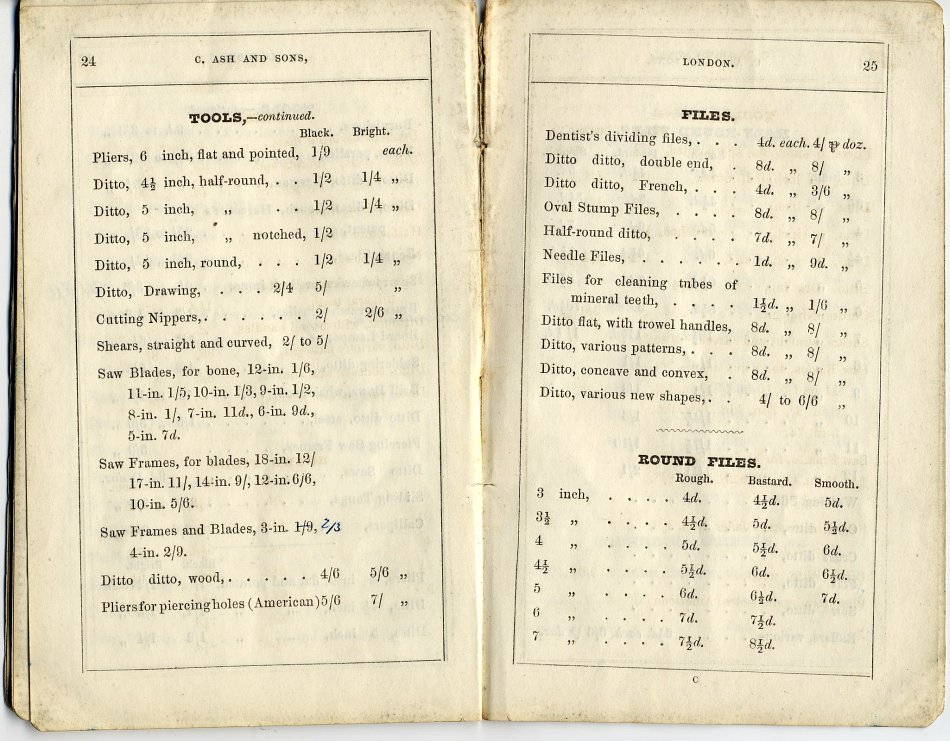 24
C. ASH AND SONS,
TOOLS,—continued.
Black. Bright.
Pliers, 6 inch, flat and pointed, 1/9 each.
Ditto, 4½ inch, half-round, . . 1/2 1/4 „
Ditto, 5 inch, „ . . . 1/2 1/4 „
Ditto, 5 inch, „ notched, 1/2
Ditto, 5 inch, round, . . . 1/2 1/4 „
Ditto, Drawing, . . . 2/4 5/ „
Cutting Nippers, . . . . . . . 2/ 2/6 „
Shears, straight and curved, 2/ to 5/
Saw Blades, for bone, 12-in. 1/6,
11-in. 1/5, 10-in. 1/3, 9-in. 1/2,
8-in. 1/, 7-in. 11d., 6-in. 9d.,
5-in. 7d.
Saw Frames, for blades, 18-in. 12/
17-in. 11/, 14-in. 9/, 12-in. 6/6,
10-in. 5/6.
Saw Frames and Blades, 3-in. 1/9, 2/3
4-in. 2/9.
Ditto ditto, wood, . . . . . 4/6 5/6 „
Pliers for piercing holes (American) 5/6 7/ „
LONDON.
25
FILES.
Dentist's dividing files, . . . 4d. each. 4/ ⅌ doz.
Ditto ditto, double end, . 8d. „ 8/ „
Ditto ditto, French, . . . 4d. „ 3/6 „
Oval Stump Files, . . . . 8d. „ 8/ „
Half-round ditto, . . . . 7d. „ 7/ „
Needle Files, . . . . . . 1d. „ 9d. „
Files for cleaning tubes of
mineral teeth, . . . . 1½d. „ 1/6 „
Ditto flat, with trowel handles, 8d. „ 8/ „
Ditto, various patterns, . . . 8d. „ 8/ „
Ditto, concave and convex, . 8d. „ 8/ „
Ditto, various new shapes, . . 4/ to 6/6 „
ROUND FILES.
Rough. Bastard. Smooth.
3 inch, . . . . 4d. 4½d. 5d.
3½ „ . . . . 4½d. 5d. 5½d.
4 „ . . . . 5d. 5½d. 6d.
4½ „ . . . . 5½d. 6d. 6½d.
5 „ . . . . 6d. 6½d. 7d.
6 „ . . . . 7d. 7½d.
7 „ . . . . 7½d. 8½d.
C